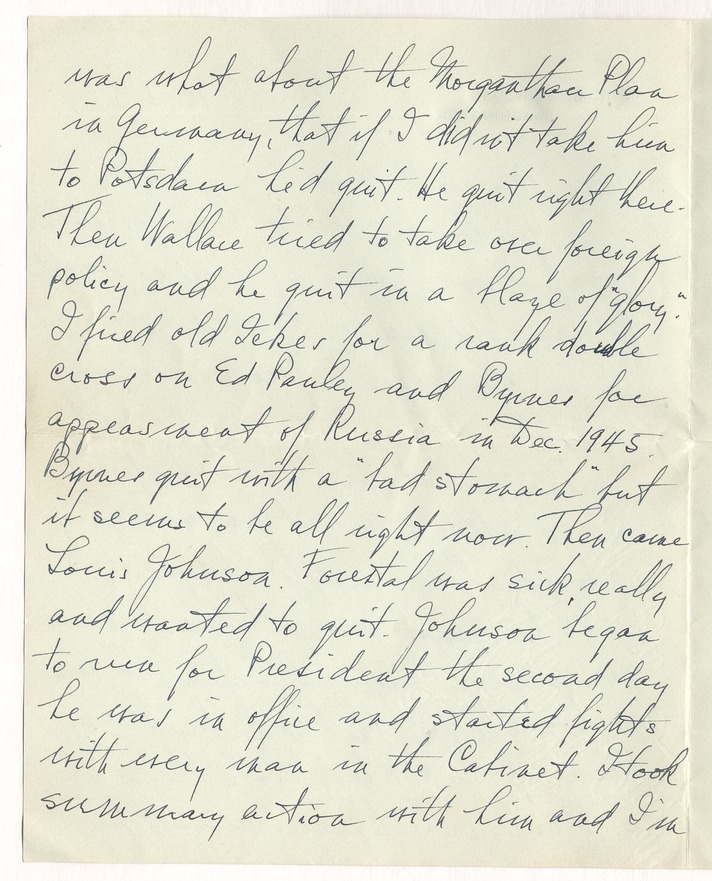 was what about the Morganthau Plan
in Germany, that if I didn't take him
to Potsdam he'd quit. He quit right there.
Then Wallace tried to take over foreign
policy and he quit in a blaze of "glory".
I fired old Ickes for a rank double
cross on Ed Pauley and Byrnes for
appeasment of Russia in Dec. 1945.
Byrnes quit with a "bad stomach" but
it seems to be all right now. Then came
Louis Johnson. Forestal was sick, really
and wanted to quit. Johnson began
to run for President the second day
he was in office and started fights
with every man in the Cabinet. I took
summary action with him and I'm